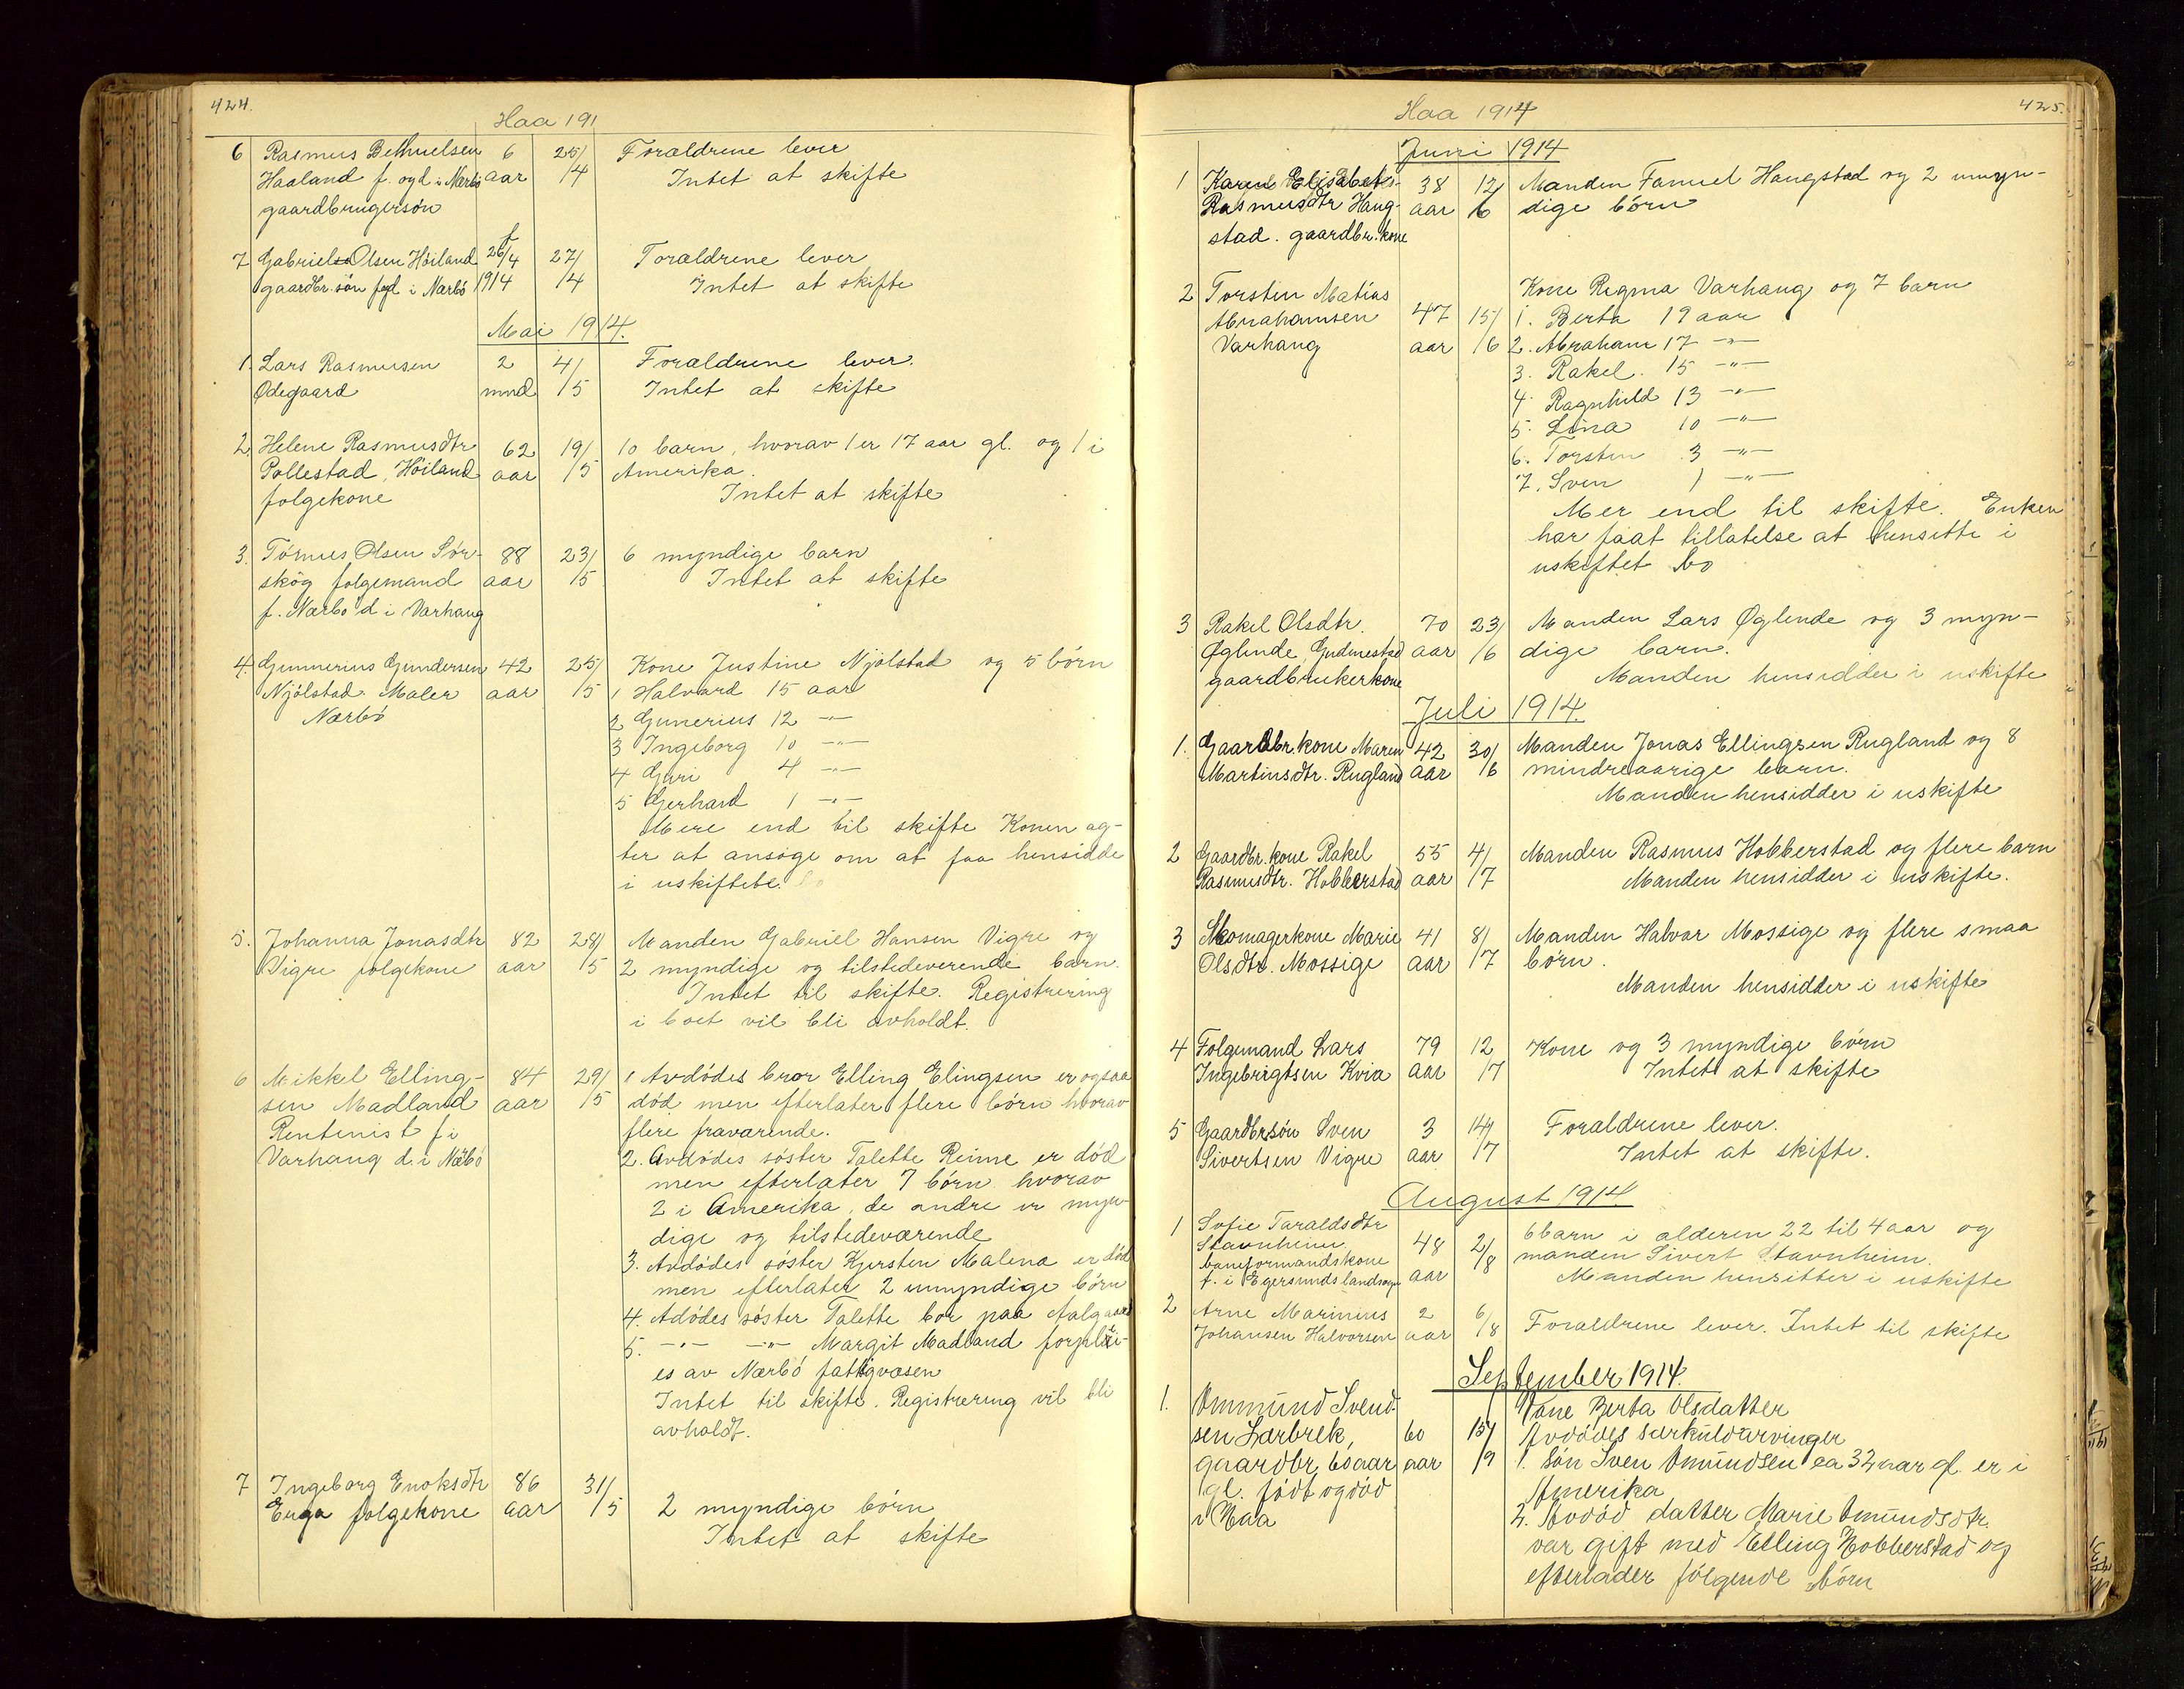 424.
Haa 191
6 Rasmus Bethuelsen 6 25/ Forældrene lever
Haaland f. og d. i Nærbö aar /4 Intet at skifte
gaardbrugersön
7 Gabriel Olsen Höiland f 26/4 27/ Forældrene lever
gaardbr. sön f og d i Nærbö 1914 /4 Intet at skifte
Mai 1914.
1. Lars Rasmusen 2 4/ Forældrene lever.
Ødegaard mnd /5 Intet at skifte
2 Helene Rasmusdtr 62 19/ 10 barn, hvorav 1 er 17 aar gl. og 1 i
Pollestad, Höiland aar /5 Amerika.
folgekone Intet at skifte
3. Tönnes Olsen Sör- 88 23/ 6 myndige barn
skog folgemand aar /5 Intet at skifte
f. Nærbö d i Varhaug
4. Gunnerius Gundersen 42 25/ Kone Justine Njölstad og 5 börn
Njölstad Maler aar /5 1 Halvard 15 aar
Nærbö
2 Gunerius 12 -"-
3 Ingeborg 10 -"-
4 Guri 4 -"-
5 Gerhard 1 -"-
Mere end til skifte Konen ag-
ter at ansöge om at faa hensidde
i uskiftet bo
5. Johanna Jonasdtr 82 28/ Manden Gabriel Hansen Vigre og
Vigre folgekone aar /5 2 myndige og tilstedeverende barn.
Intet til skifte. Registrering
i boet vil bli avholdt.
6 Mikkel Elling- 84 29/ 1 Avdödes bror Elling Elingsen er ogsaa
sen Madland aar /5 död men efterlater flere börn hvorav
Rentenist f i flere fraværende.
Varhaug d. i Nærbö 2. Avdödes söster Talette Reime er död
men efterlater 7 börn hvorav
2 i Amerika, de andre er myn-
dige og tilstedeværende
3. Avdödes söster Kjersten Malena er död
men efterlater 2 umyndige börn
4. Adödes söster Talette bor paa Aalgaard
5. -"- -"- Margit Madland forplei-
es av Nærbö fattigvæsen
Intet til skifte. Registrering vil bli
avholdt.
7 Ingeborg Enoksdtr 86 31/
Enga folgekone aar /5 2 myndige börn
Intet at skifte
425.
Haa 1914
Juni 1914
1 Karen Elisabet 38 12/ Manden Famuel Haugstad og 2 umyn-
Rasmusdtr Haug- aar /6 dige börn
stad. gaardbr. kone
2 Torsten Matias Kone Regina Varhaug og 7 barn
Abrahamsen 47 15/ 1. Berta 19 aar
Varhaug aar /6 2. Abraham 17 -"-
3. Rakel. 15 -"-
4. Ragnhild 13 -"-
5. Lina 10 -"-
6. Torsten 3 -"-
7. Sven 1 -"-
Mer end til skifte. Enken
har faat tillatelse at hensitte i
uskiftet bo
3 Rakel Olsdtr. 70 23/ Manden Lars Øglende og 3 myn-
Øglende, Gudmestad aar /6 dige barn.
gaardbrukerkone Manden hensidder i uskifte
Juli 1914.
1. Gaardbrkone Maren 42 30/ Manden Jonas Ellingsen Rugland og 8
Martinsdtr. Rugland aar /6 mindreaarige barn.
Manden hensidder i uskifte
2 Gaardbr. kone Rakel 55 4/ Manden Rasmus Hobberstad og flere barn
Rasmusdtr. Hobberstad aar /7 Manden hensidder i uskifte.
3 Skomagerkone Marie 41 8/ Manden Halvor Mossige og flere smaa
Olsdtr. Mossige aar /7 börn.
Manden hensidder i uskifte
4 Folgemand Lars 79 12 Kone og 3 myndige börn
Ingebrigtsen Kvia aar /7 Intet at skifte
5 Gaardbrsön Sven 3 14/ Foraldrene lever.
Sivertsen Vigre aar /7 Intet at skifte.
August 1914.
1 Sofie Taraldsdtr 6 barn i alderen 22 til 4 aar og
Stavnheim 48 2/8 manden Sivert Stavnheim.
baneformandskone aar Manden hensitter i uskifte
f. i Egersunds landsogn
2 Arne Marinius 2 6/ Foraldrene lever. Intet til skifte
Johansen Halvorsen aar /8
September 1914.
1. Ommund Svend- Kone Berta Olsdatter
sen Lærbrek, 60 15/ Avdödes særkuldarvinger
gaardbr. 60 aar aar /9 1. Sön Sven Omundsen ca 32 aar gl. er i
gl. födt og död Amerika
i Haa 2. Avdöd datter Marie Omundsdtr.
var gift med Elling Hobberstad og
efterlader fölgende börn